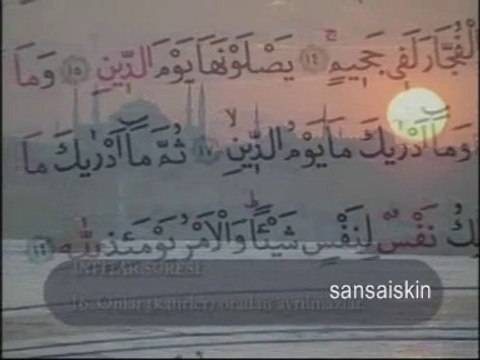 الْفُجَّارَ لَفٖي جَحٖيمٍ ١٤ يَصْلَوْنَهَا يَوْمَ الدّٖينِ ١٥ وَمَا
وَمَٓا اَدْرٰيكَ مَا يَوْمُ الدّٖينِ ١٧ ثُمَّ مَٓا اَدْرٰيكَ مَا
لِكُ نَفْسٌ لِنَفْسٍ شَيْـًٔا وَالْاَمْرُ يَوْمَئِذٍ لِلّٰهِ ١٩
İNFİTAR SURESİ
sansaiskin
16- Onlar (kafirler) oradan ayrılmazlar.